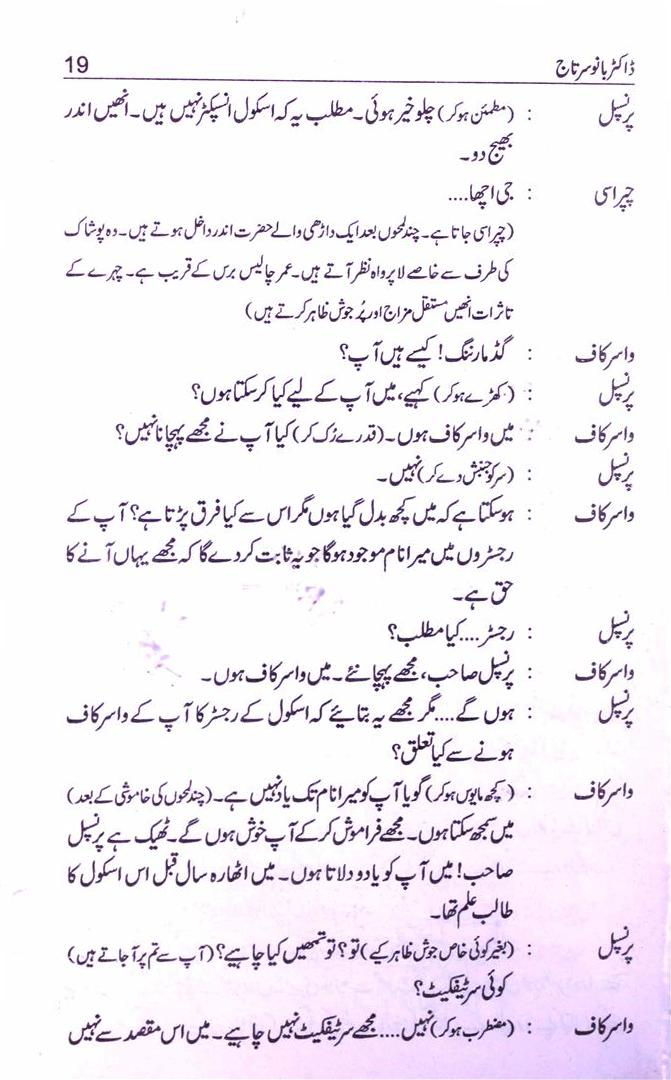 ڈاکٹر بانو سرتاج 19
پرنسپل : (مطمئن ہوکر) چلو خیر ہوئی۔ مطلب یہ کہ اسکول انسپکٹر نہیں ہیں۔ انھیں اندر
بھیج دو۔
چپراسی : جی اچھا....
(چپراسی جاتا ہے۔ چند لمحوں بعد ایک داڑھی والے حضرت اندر داخل ہوتے ہیں۔ وہ پوشاک
کی طرف سے خاصے لا پرواہ نظر آتے ہیں۔ عمر چالیس برس کے قریب ہے۔ چہرے کے
تاثرات انھیں مستقل مزاج اور پُر جوش ظاہر کرتے ہیں)
واسرکاف : گڈ مارننگ! کیسے ہیں آپ؟
پرنسپل : (کھڑے ہوکر) کہیے، میں آپ کے لیے کیا کرسکتا ہوں؟
واسرکاف : میں واسرکاف ہوں۔ (قدرے رُک کر) کیا آپ نے مجھے پہچانا نہیں؟
پرنسپل : (سرکو جنبش دے کر) نہیں۔
واسرکاف : ہوسکتا ہے کہ میں کچھ بدل گیا ہوں مگر اس سے کیا فرق پڑتا ہے؟ آپ کے
رجسٹروں میں میرا نام موجود ہوگا جو یہ ثابت کردے گا کہ مجھے یہاں آنے کا
حق ہے۔
پرنسپل : رجسٹر.... کیا مطلب؟
واسرکاف : پرنسپل صاحب، مجھے پہچانئے۔ میں واسرکاف ہوں۔
پرنسپل : ہوں گے.... مگر مجھے یہ بتایئے کہ اسکول کے رجسٹر کا آپ کے واسرکاف
ہونے سے کیا تعلق؟
واسرکاف : (کچھ مایوس ہوکر) گویا آپ کو میرا نام تک یاد نہیں ہے۔ (چند لمحوں کی خاموشی کے بعد)
میں سمجھ سکتا ہوں۔ مجھے فراموش کرکے آپ خوش ہوں گے۔ ٹھیک ہے پرنسپل
صاحب! میں آپ کو یاد دلاتا ہوں۔ میں اٹھارہ سال قبل اس اسکول کا
طالب علم تھا۔
پرنسپل : (بغیر کوئی خاص جوش ظاہر کیے) تو؟ تو تمھیں کیا چاہیے؟ (آپ سے تم پر آجاتے ہیں)
کوئی سرٹیفکیٹ؟
واسرکاف : (مضطرب ہوکر) نہیں.... مجھے سرٹیفکیٹ نہیں چاہیے۔ میں اس مقصد سے نہیں